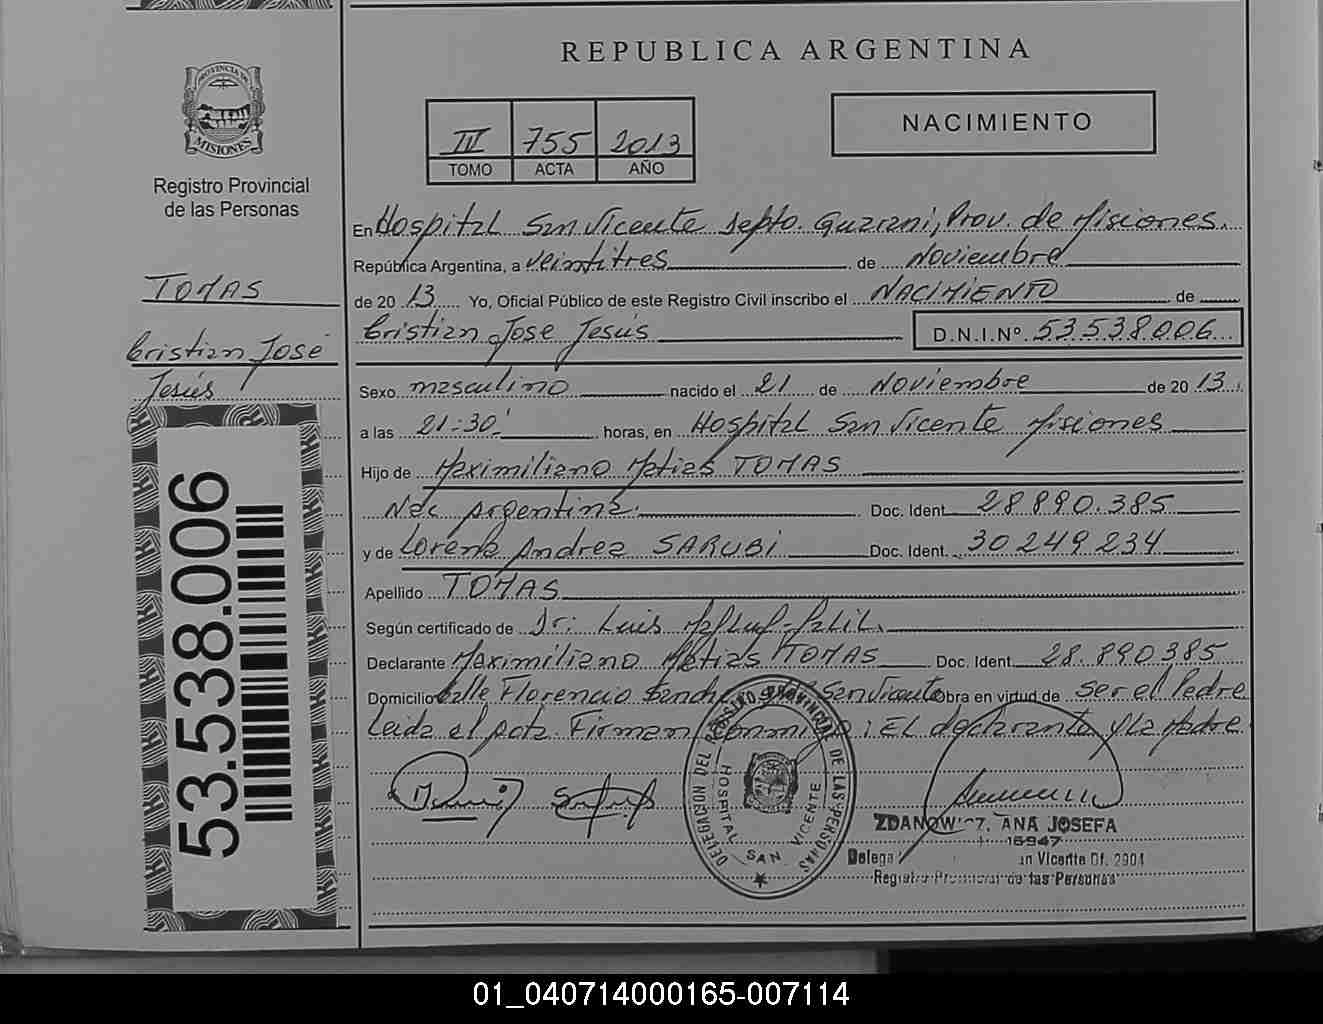 REPUBLICA ARGENTINA
PROVINCIA DE
MISIONES
Registro Provincial
de las Personas
III 755 2013
TOMO ACTA AÑO
NACIMIENTO
TOMAS
Cristian José
Jesús
53.538.006
En Hospital San Vicente Depto. Guarani, Prov. de Misiones.
República Argentina, a veintitres de Noviembre
de 2013 Yo, Oficial Público de este Registro Civil inscribo el NACIMIENTO de
Cristian Jose Jesús D.N.I.Nº 53.538.006
Sexo masculino nacido el 21 de Noviembre de 2013
a las 21:30' horas, en Hospital San Vicente Misiones
Hijo de Maximiliano Matias TOMAS
Nac Argentina. Doc. Ident. 28890.385
y de Lorena Andrea SARUBI Doc. Ident. 30249234
Apellido TOMAS
Según certificado de Dr: Luis
Declarante Maximiliano Matias TOMAS Doc. Ident. 28.890385
Domicilio Calle Florencio San Vicente Obra en virtud de ser el Padre
Leida el Acta. Firman Conmigo: El declarante y la Madre
DELEGACION DEL REGISTRO PROVINCIAL DE LAS PERSONAS
HOSPITAL SAN VICENTE
ANA JOSEFA
16947
Vicente Of. 2904
Registro Provincial de las Personas
01_040714000165-007114